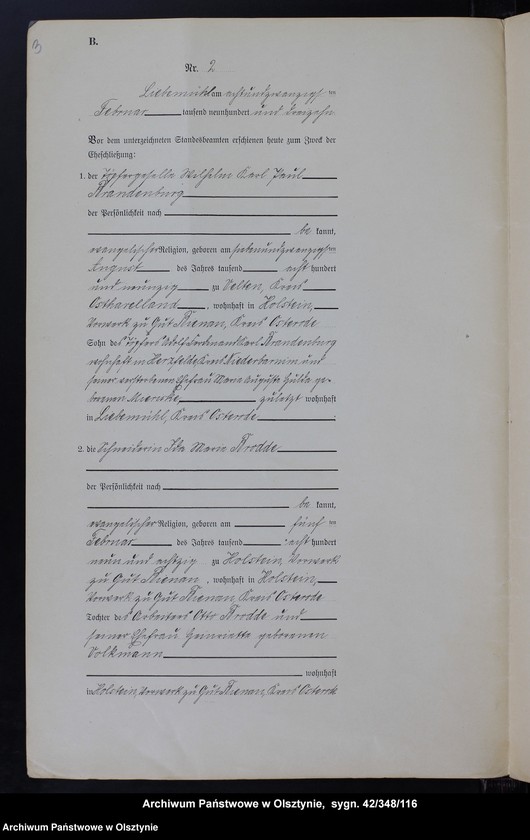 B.
Nr. 2
Liebemühl am achtundzwanzigsten
Februar tausend neunhundert und dreizehn
Vor dem unterzeichneten Standesbeamten erschienen heute zum Zweck der
Eheschließung:
1. der Töpfergeselle Wilhelm Karl Paul
Brandenburg
der Persönlichkeit nach
be kannt,
evangelischer Religion, geboren am siebenundzwanzigsten
August des Jahres tausend acht hundert
und neunzig zu Velten, Kreis
Osthavelland, wohnhaft in Holstein,
Vorwerk zu Gut Bienau, Kreis Osterode
Sohn des Töpfers Adolf Ferdinand Karl Brandenburg
wohnhaft in Herzfelde, Kreis Niederbarnim und
seiner verstorbenen Ehefrau Marie Auguste Hulda ge-
borenen zuletzt wohnhaft
in Liebemühl, Kreis Osterode.
2. die Schneiderin Ida Marie Brodde
der Persönlichkeit nach
be kannt,
evangelischer Religion, geboren am fünften
Februar des Jahres tausend acht hundert
neun und achtzig zu Holstein, Vorwerk
zu Gut Bienau, wohnhaft in Holstein,
Vorwerk zu Gut Bienau, Kreis Osterode
Tochter des Arbeiters Otto Brodde und
seiner Ehefrau Henriette geborenen
Volkmann
wohnhaft
in Holstein, Vorwerk zu Gut Bienau, Kreis Osterode
Archiwum Państwowe w Olsztynie, sygn. 42/348/116
Archiwum Państwowe w Olsztynie